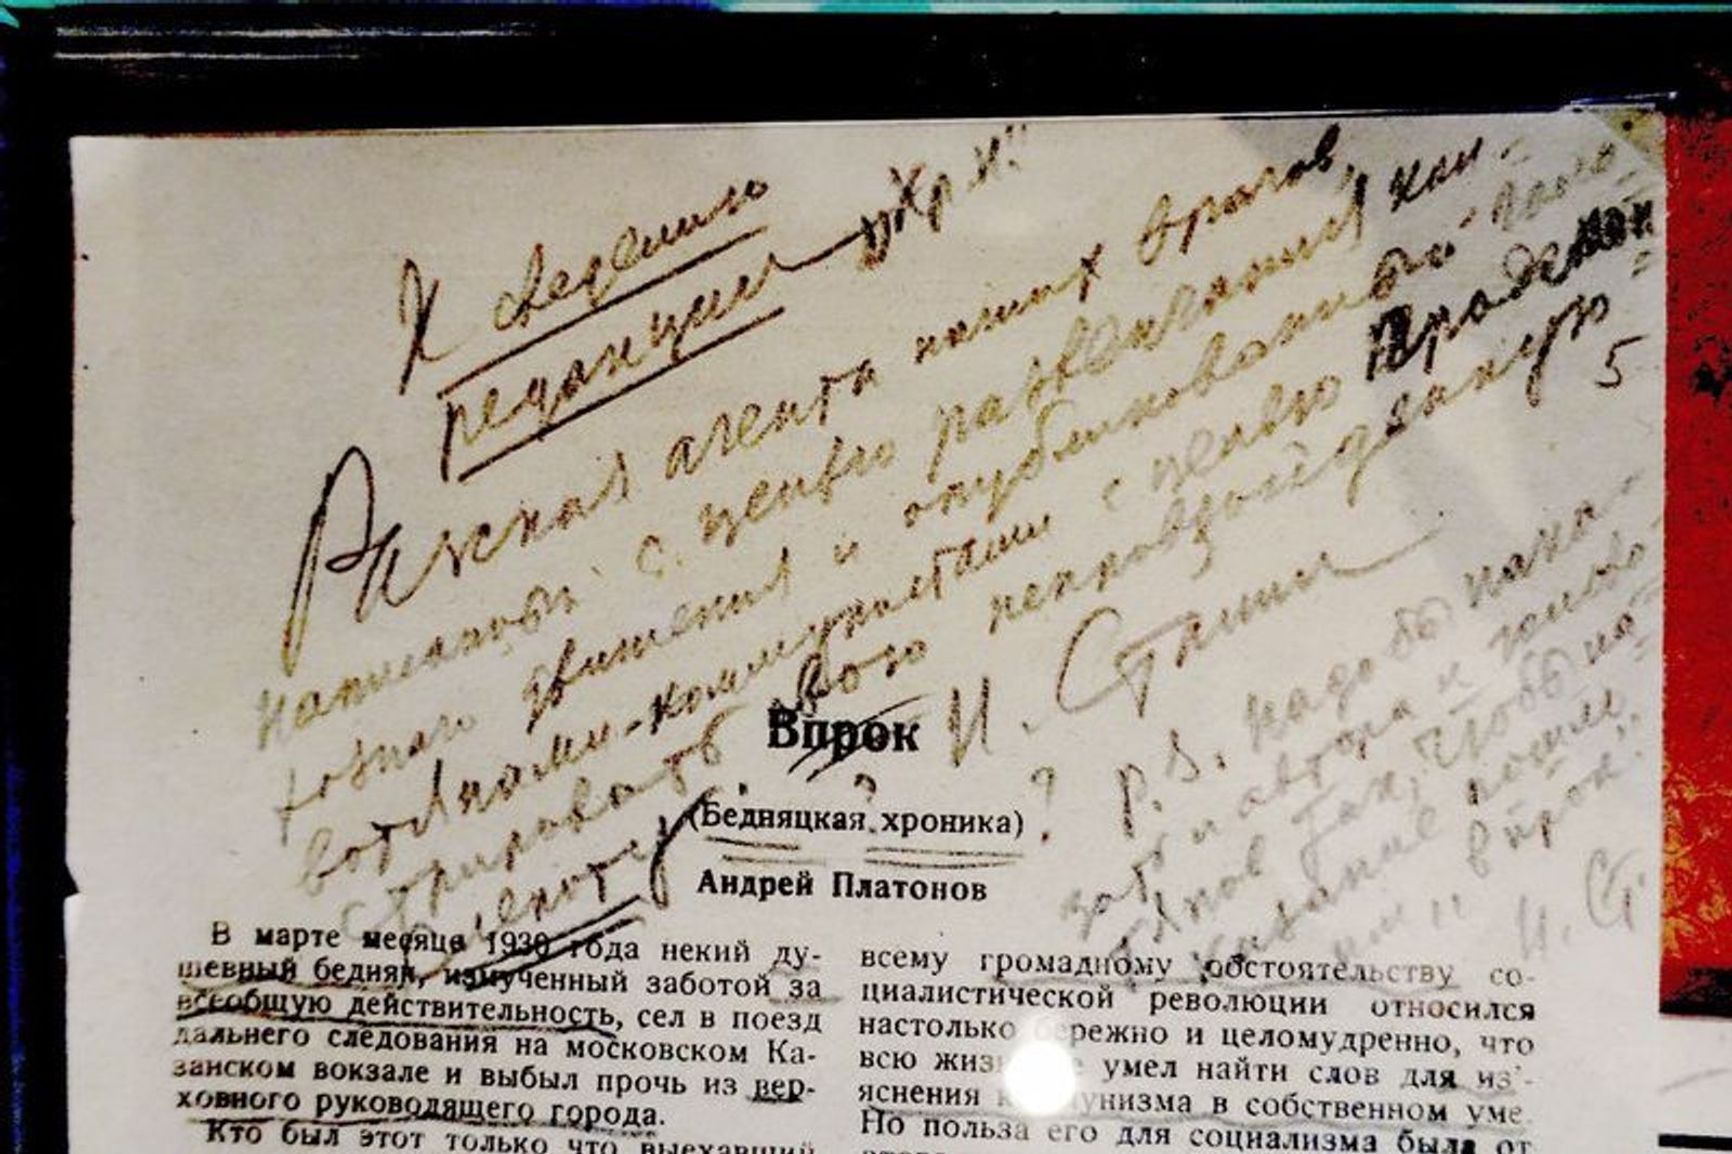 К сведению
редакции "Кр. н."
Рассказ агента наших врагов,
написанный с целью развенчания кол-
хозного движения и опубликованный голо-
вотяпами-коммунистами с целью продемон-
стрировать свою непревзойденную
слепоту.
И. Сталин
5
P.S. Надо бы нака-
зать и автора и голово-
тяпов так, чтобы на-
казание пошло
им „впрок".
И. Ст.
Впрок
?
(Бедняцкая хроника) ?
Андрей Платонов
В марте месяце 1930 года некий ду-
шевный бедняк, измученный заботой за
всеобщую действительность, сел в поезд
дальнего следования на московском Ка-
занском вокзале и выбыл прочь из вер-
ховного руководящего города.
Кто был этот только что выехавший
всему громадному обстоятельству со-
циалистической революции относился
настолько бережно и целомудренно, что
всю умел найти слов для из'-
яснения в собственном уме.
Но польза его для социализма была от